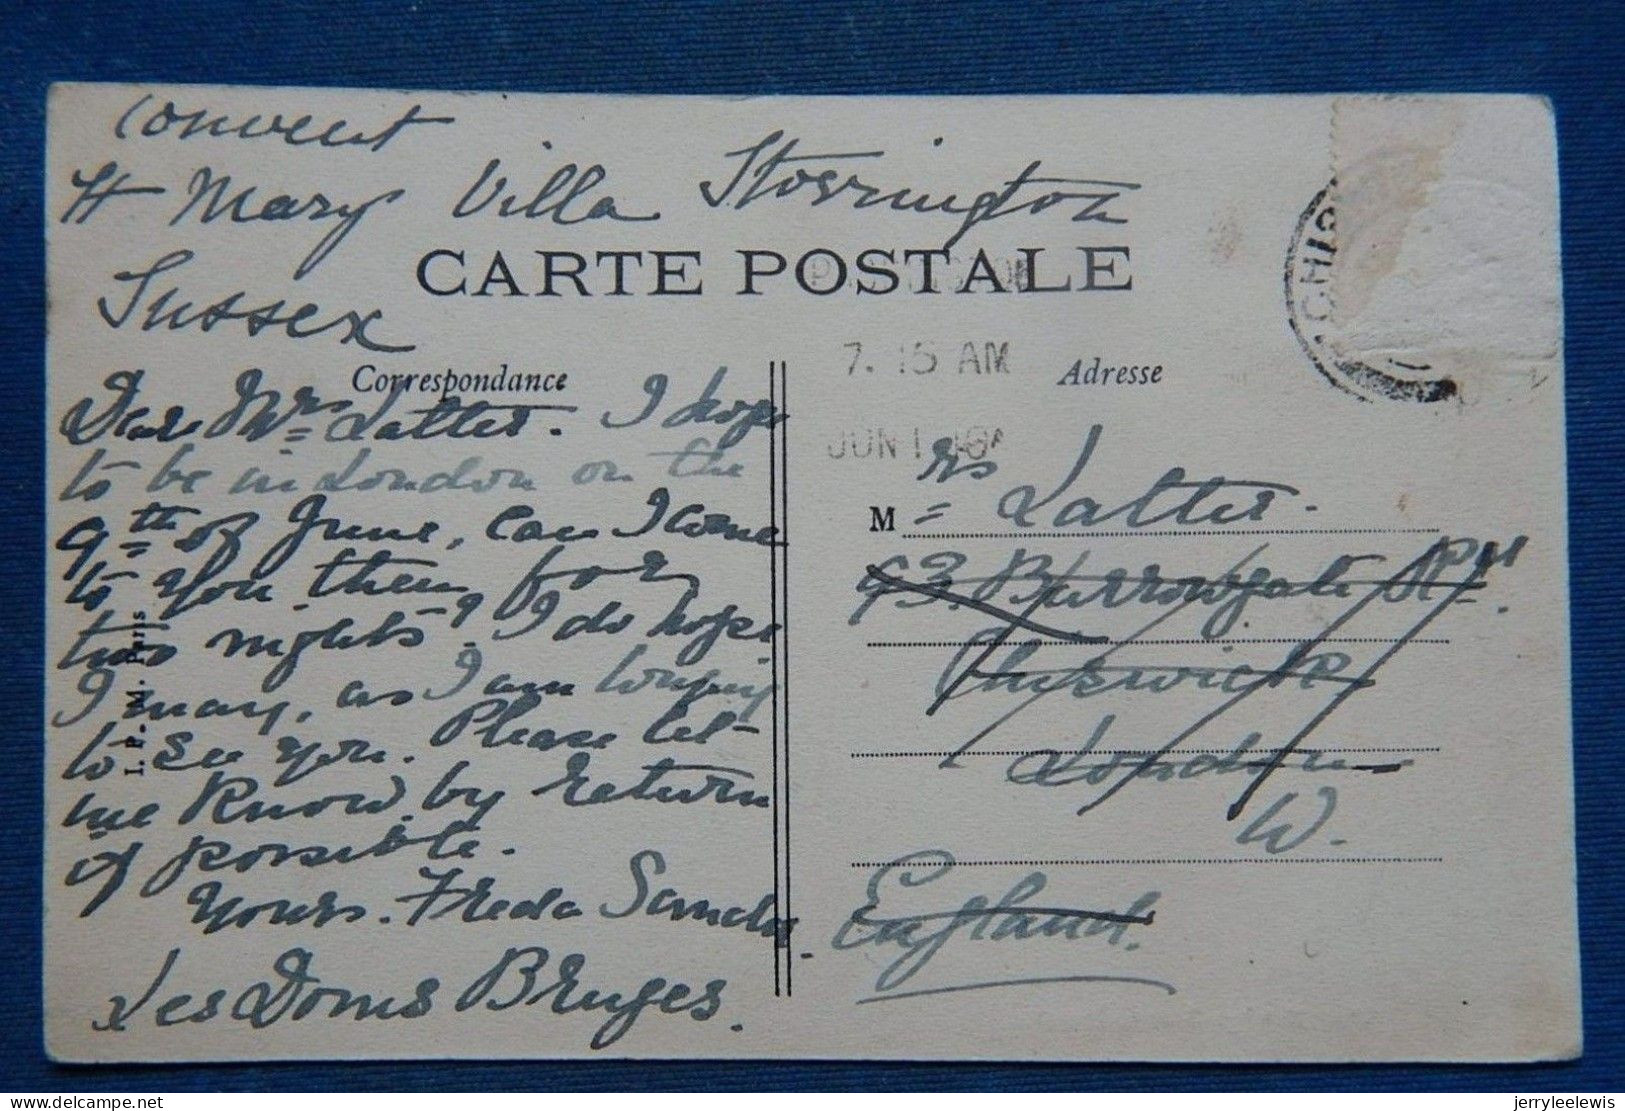 Convent
St Marys Villa Storrington
Sussex
CARTE POSTALE
Correspondance
Adresse
7. 15 AM
JUN 1
CHIS
Dear Mrs Latter. I hope
to be in London on the
9th of June, can I come
to you then for
two nights? I do hope
I may, as I am longing
to see you. Please let
me know by return
if possible.
Yours. Freda
Les Doms Bruges.
I. P. M. Paris
Mrs Latter.
93. Burrowgate Rd.
Chiswick
London
W.
England.
jerryleelewis